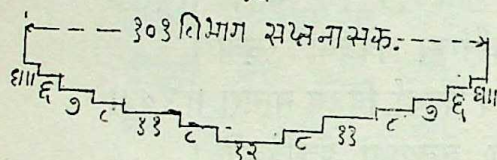 १०१ विभाग सप्तनासक.
५॥ ६ ७ ८ ११ ८ १२ ८ ११ ८ ७ ६ ५॥